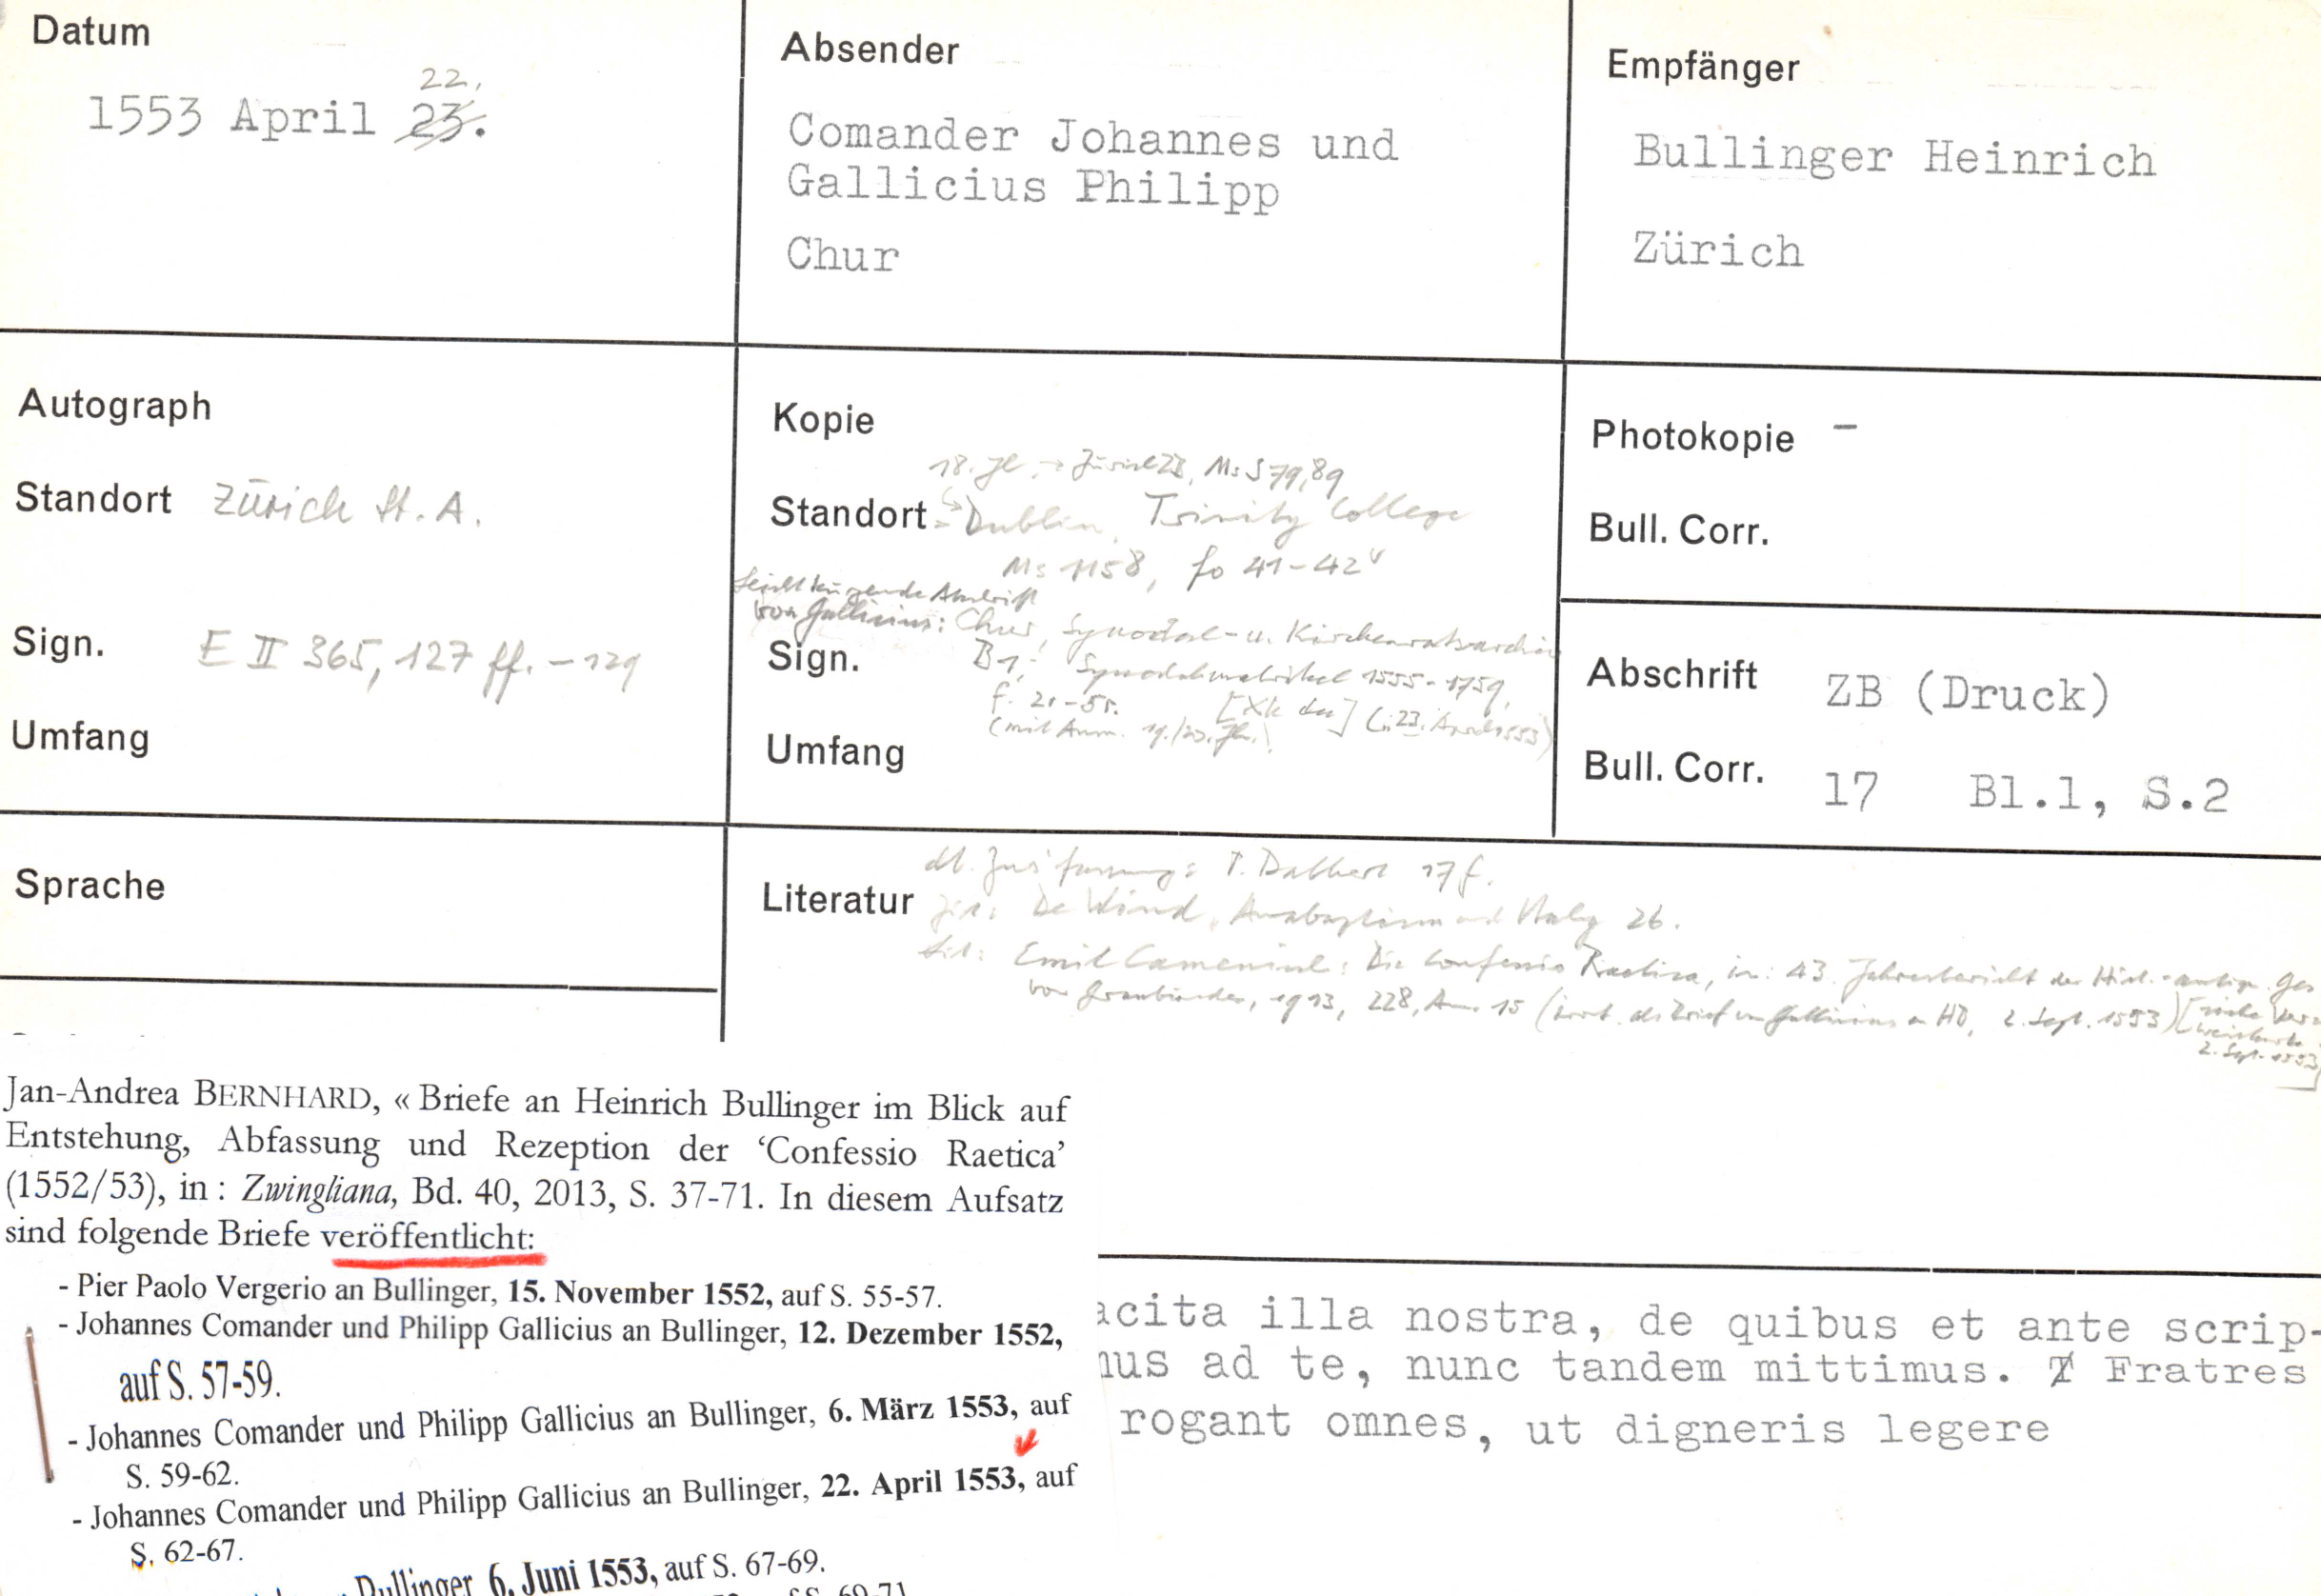 Datum
22.
1553 April 23.
Absender
Comander Johannes und
Gallicius Philipp
Chur
Empfänger
Bullinger Heinrich
Zürich
Autograph
Standort Zürich St. A.
Sign. E II 365, 127 ff. - 129
Umfang
Kopie
18. Jh. → Zürich ZB, Ms S 79, 89
Standort Dublin, Trinity College
Ms 1158, fo 41-42v
von Gallicius: Chur, Synodal- u. Kirchenratsarchiv
Sign. B 1, Synodalmatrikel 1555-1759,
(mit Anm. 19./20. Jh.) (: 23. April 1553)
Umfang
Photokopie -
Bull. Corr.
Abschrift ZB (Druck)
Bull. Corr. 17 Bl.1, S.2
Sprache
dt. T. Dalbert 17 f.
Literatur De Wind, Anabaptism and Italy 26.
Emil Camenisch: Die Confessio Raetica, in: 43. Jahresbericht der Hist.-antiq. Ges
von Graubünden, 1913, 228, Anm. 15 (irrt. als Brief von Gallicius an HB, 2. Sept. 1553) [siehe
2. Sept. 1553]
Jan-Andrea BERNHARD, « Briefe an Heinrich Bullinger im Blick auf
Entstehung, Abfassung und Rezeption der ‘Confessio Raetica’
(1552/53), in : Zwingliana, Bd. 40, 2013, S. 37-71. In diesem Aufsatz
sind folgende Briefe veröffentlicht:
- Pier Paolo Vergerio an Bullinger, 15. November 1552, auf S. 55-57.
- Johannes Comander und Philipp Gallicius an Bullinger, 12. Dezember 1552,
auf S. 57-59.
- Johannes Comander und Philipp Gallicius an Bullinger, 6. März 1553, auf
S. 59-62.
- Johannes Comander und Philipp Gallicius an Bullinger, 22. April 1553, auf
S. 62-67.
Bullinger 6. Juni 1553, auf S. 67-69.
69-71
acita illa nostra, de quibus et ante scrip-
mus ad te, nunc tandem mittimus. Fratres
rogant omnes, ut digneris legere